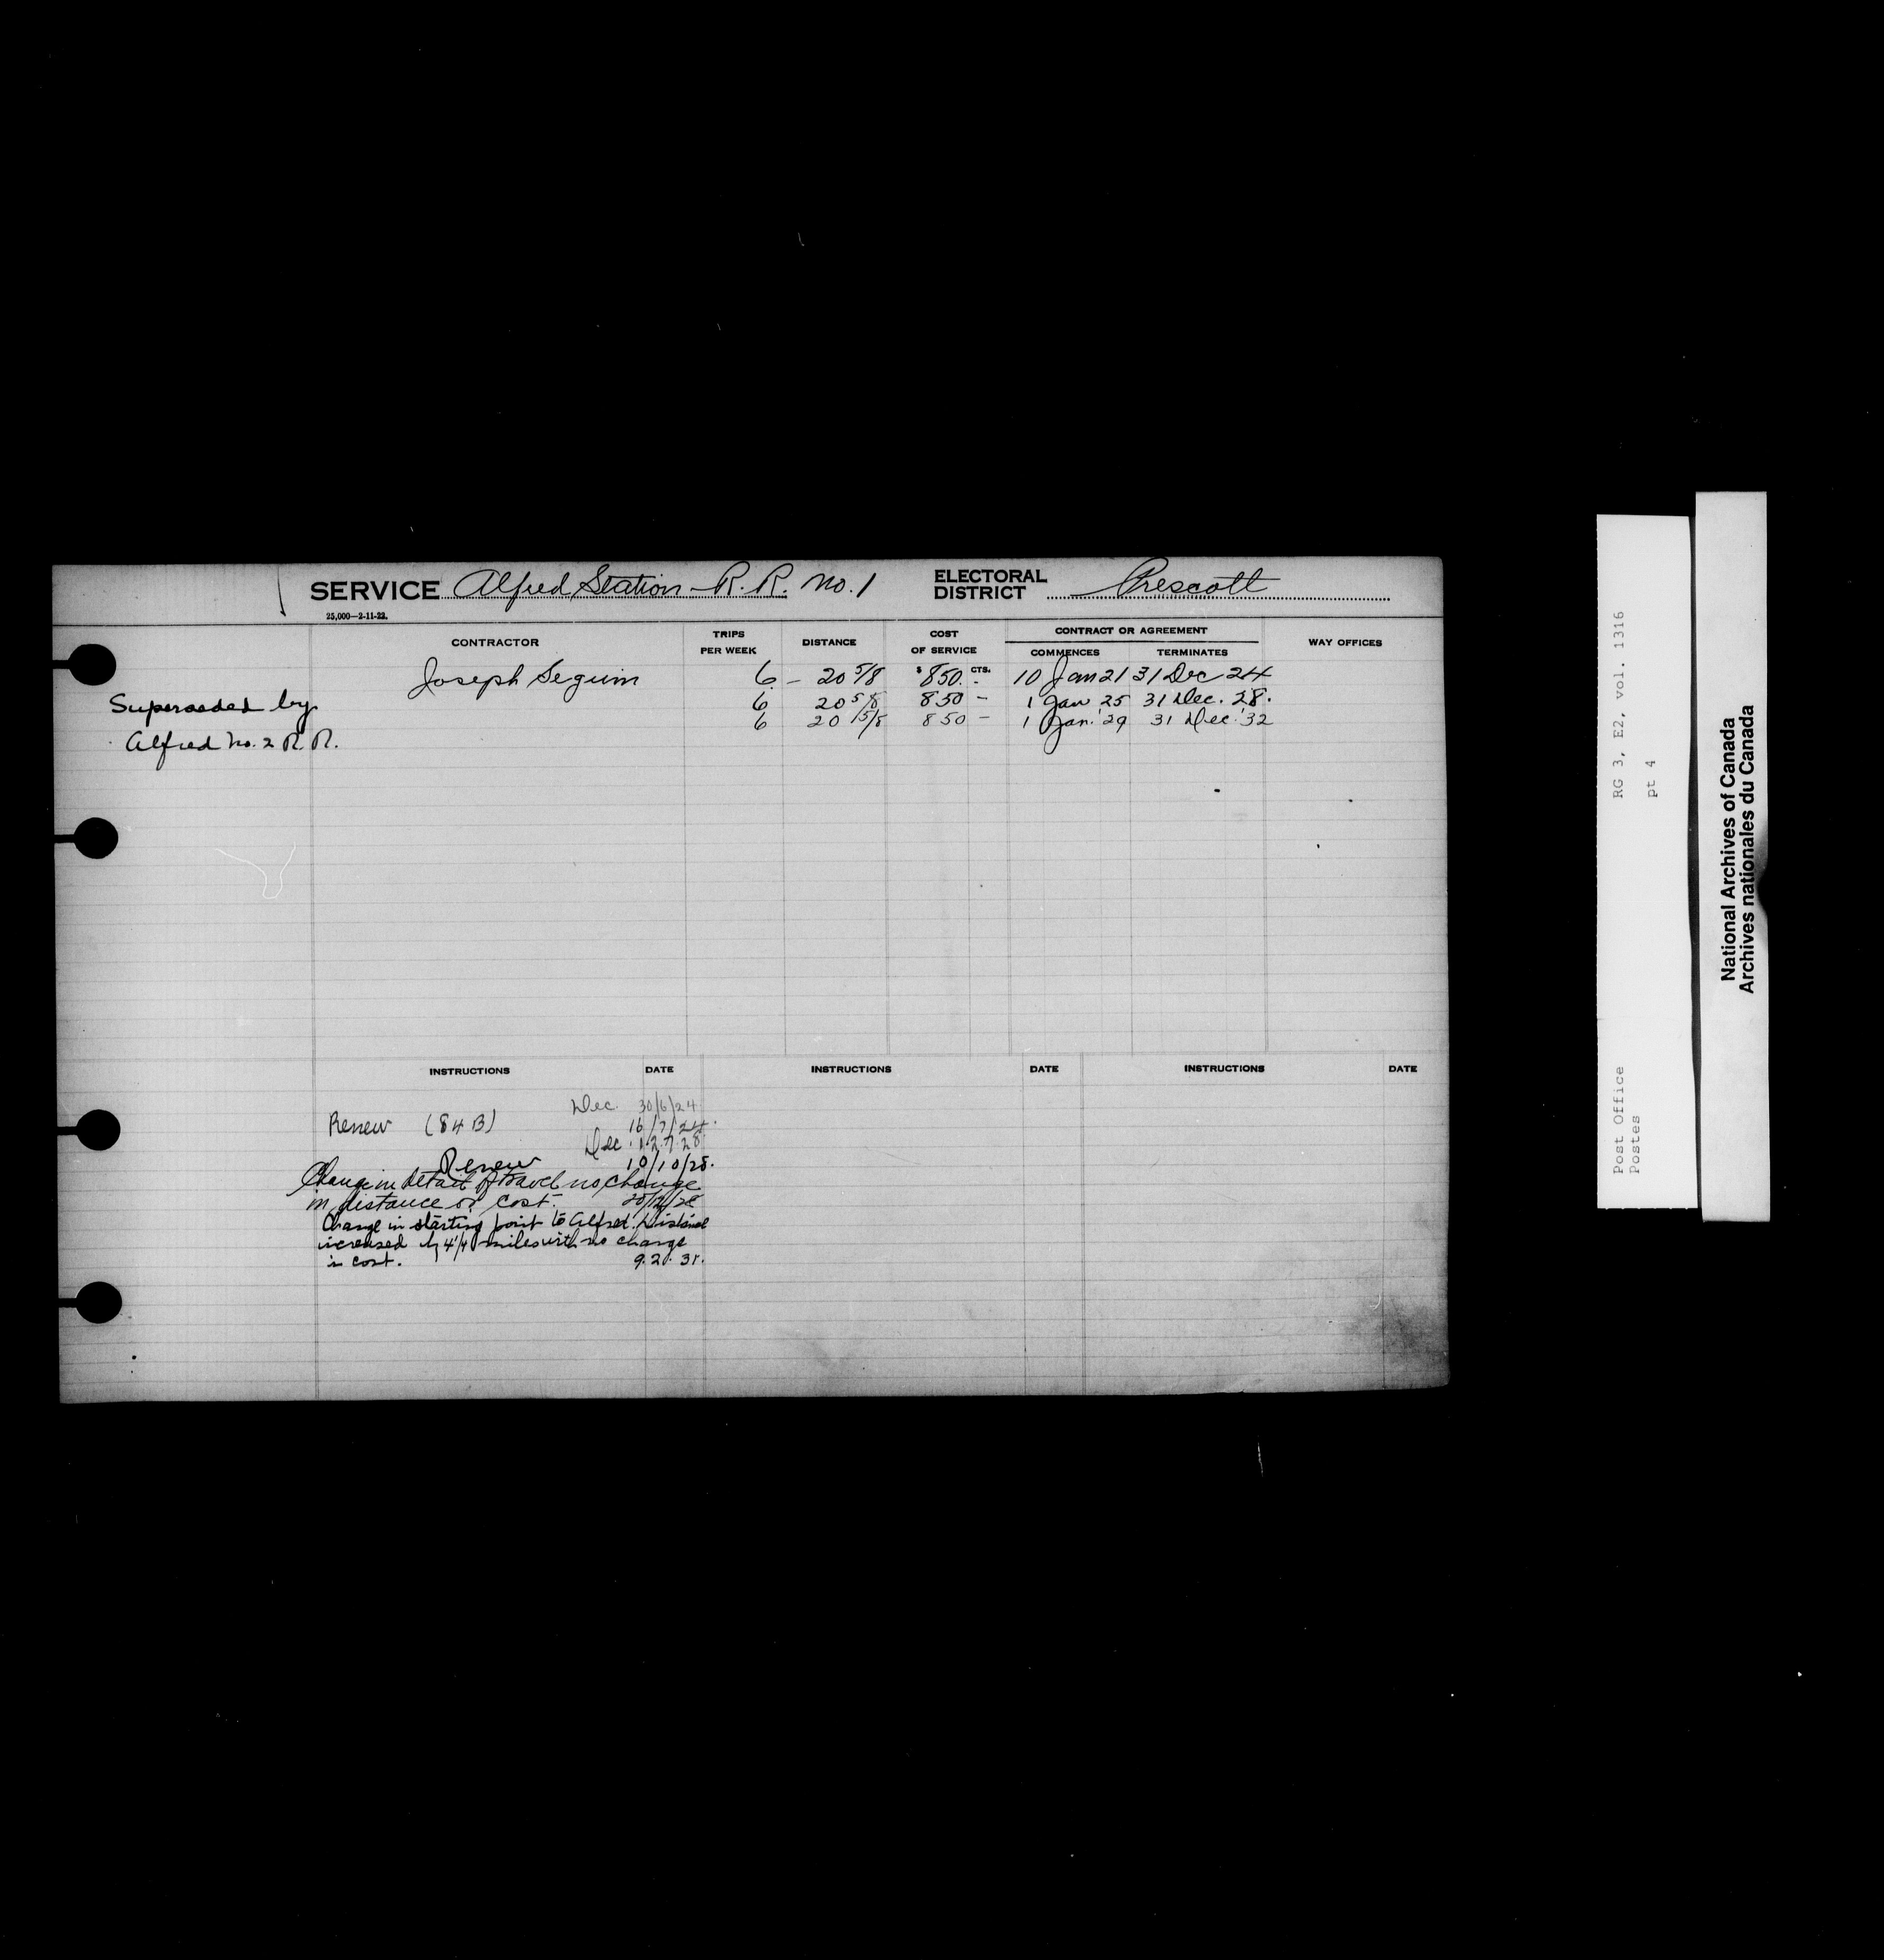 SERVICE Alfred Station R. R. No. 1 ELECTORAL DISTRICT Prescott
25,000—2-11-22.
CONTRACTOR TRIPS PER WEEK DISTANCE COST OF SERVICE CONTRACT OR AGREEMENT COMMENCES TERMINATES WAY OFFICES
Joseph Seguin 6 – 20 5/8 $ 850. CTS. – 10 Jan 21 31 Dec 24
Superseded by 6 20 5/8 850 – 1 Jan 25 31 Dec. '28.
Alfred No. 2 R. R. 6 20 5/8 850 – 1 Jan. '29 31 Dec. '32
INSTRUCTIONS DATE INSTRUCTIONS DATE INSTRUCTIONS DATE
Dec. 30/6/24
Renew (84B) 16/7/24.
Dec. 12.7.28
Renew 10/10/28.
Change in detail of travel no change
in distance or cost. 28
Change in starting point to Alfred. Distance
increased by 4 1/4 miles with no change
in cost. 9.2. 31.
Post Office RG 3, E2, vol. 1316
Postes pt 4
National Archives of Canada
Archives nationales du Canada